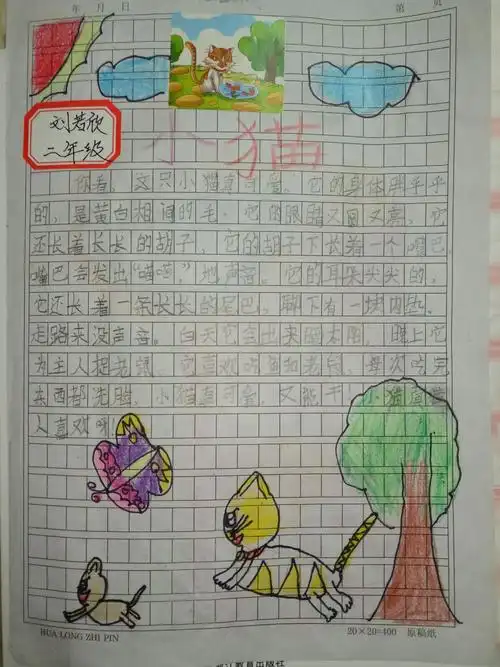 年 月 日 第 页
刘若欣
二年级
小猫
你看，这只小猫真可爱。它的身体胖乎乎
的，是黄白相间的毛。它的眼睛又圆又亮，它
还长着长长的胡子，它的胡子下长着一个嘴巴，
嘴巴会发出“喵喵”地声音。它的耳朵尖尖的，
它还长着一条长长的尾巴，脚下有一块肉垫，
走路来没声音。白天它会出来晒太阳，晚上它
为主人捉老鼠，它喜欢吃鱼和老鼠，每次吃完
东西都洗脸，小猫真可爱，又能干，小猫真
人喜欢呀
HUA LONG ZHI PIN 20×20=400 原稿纸